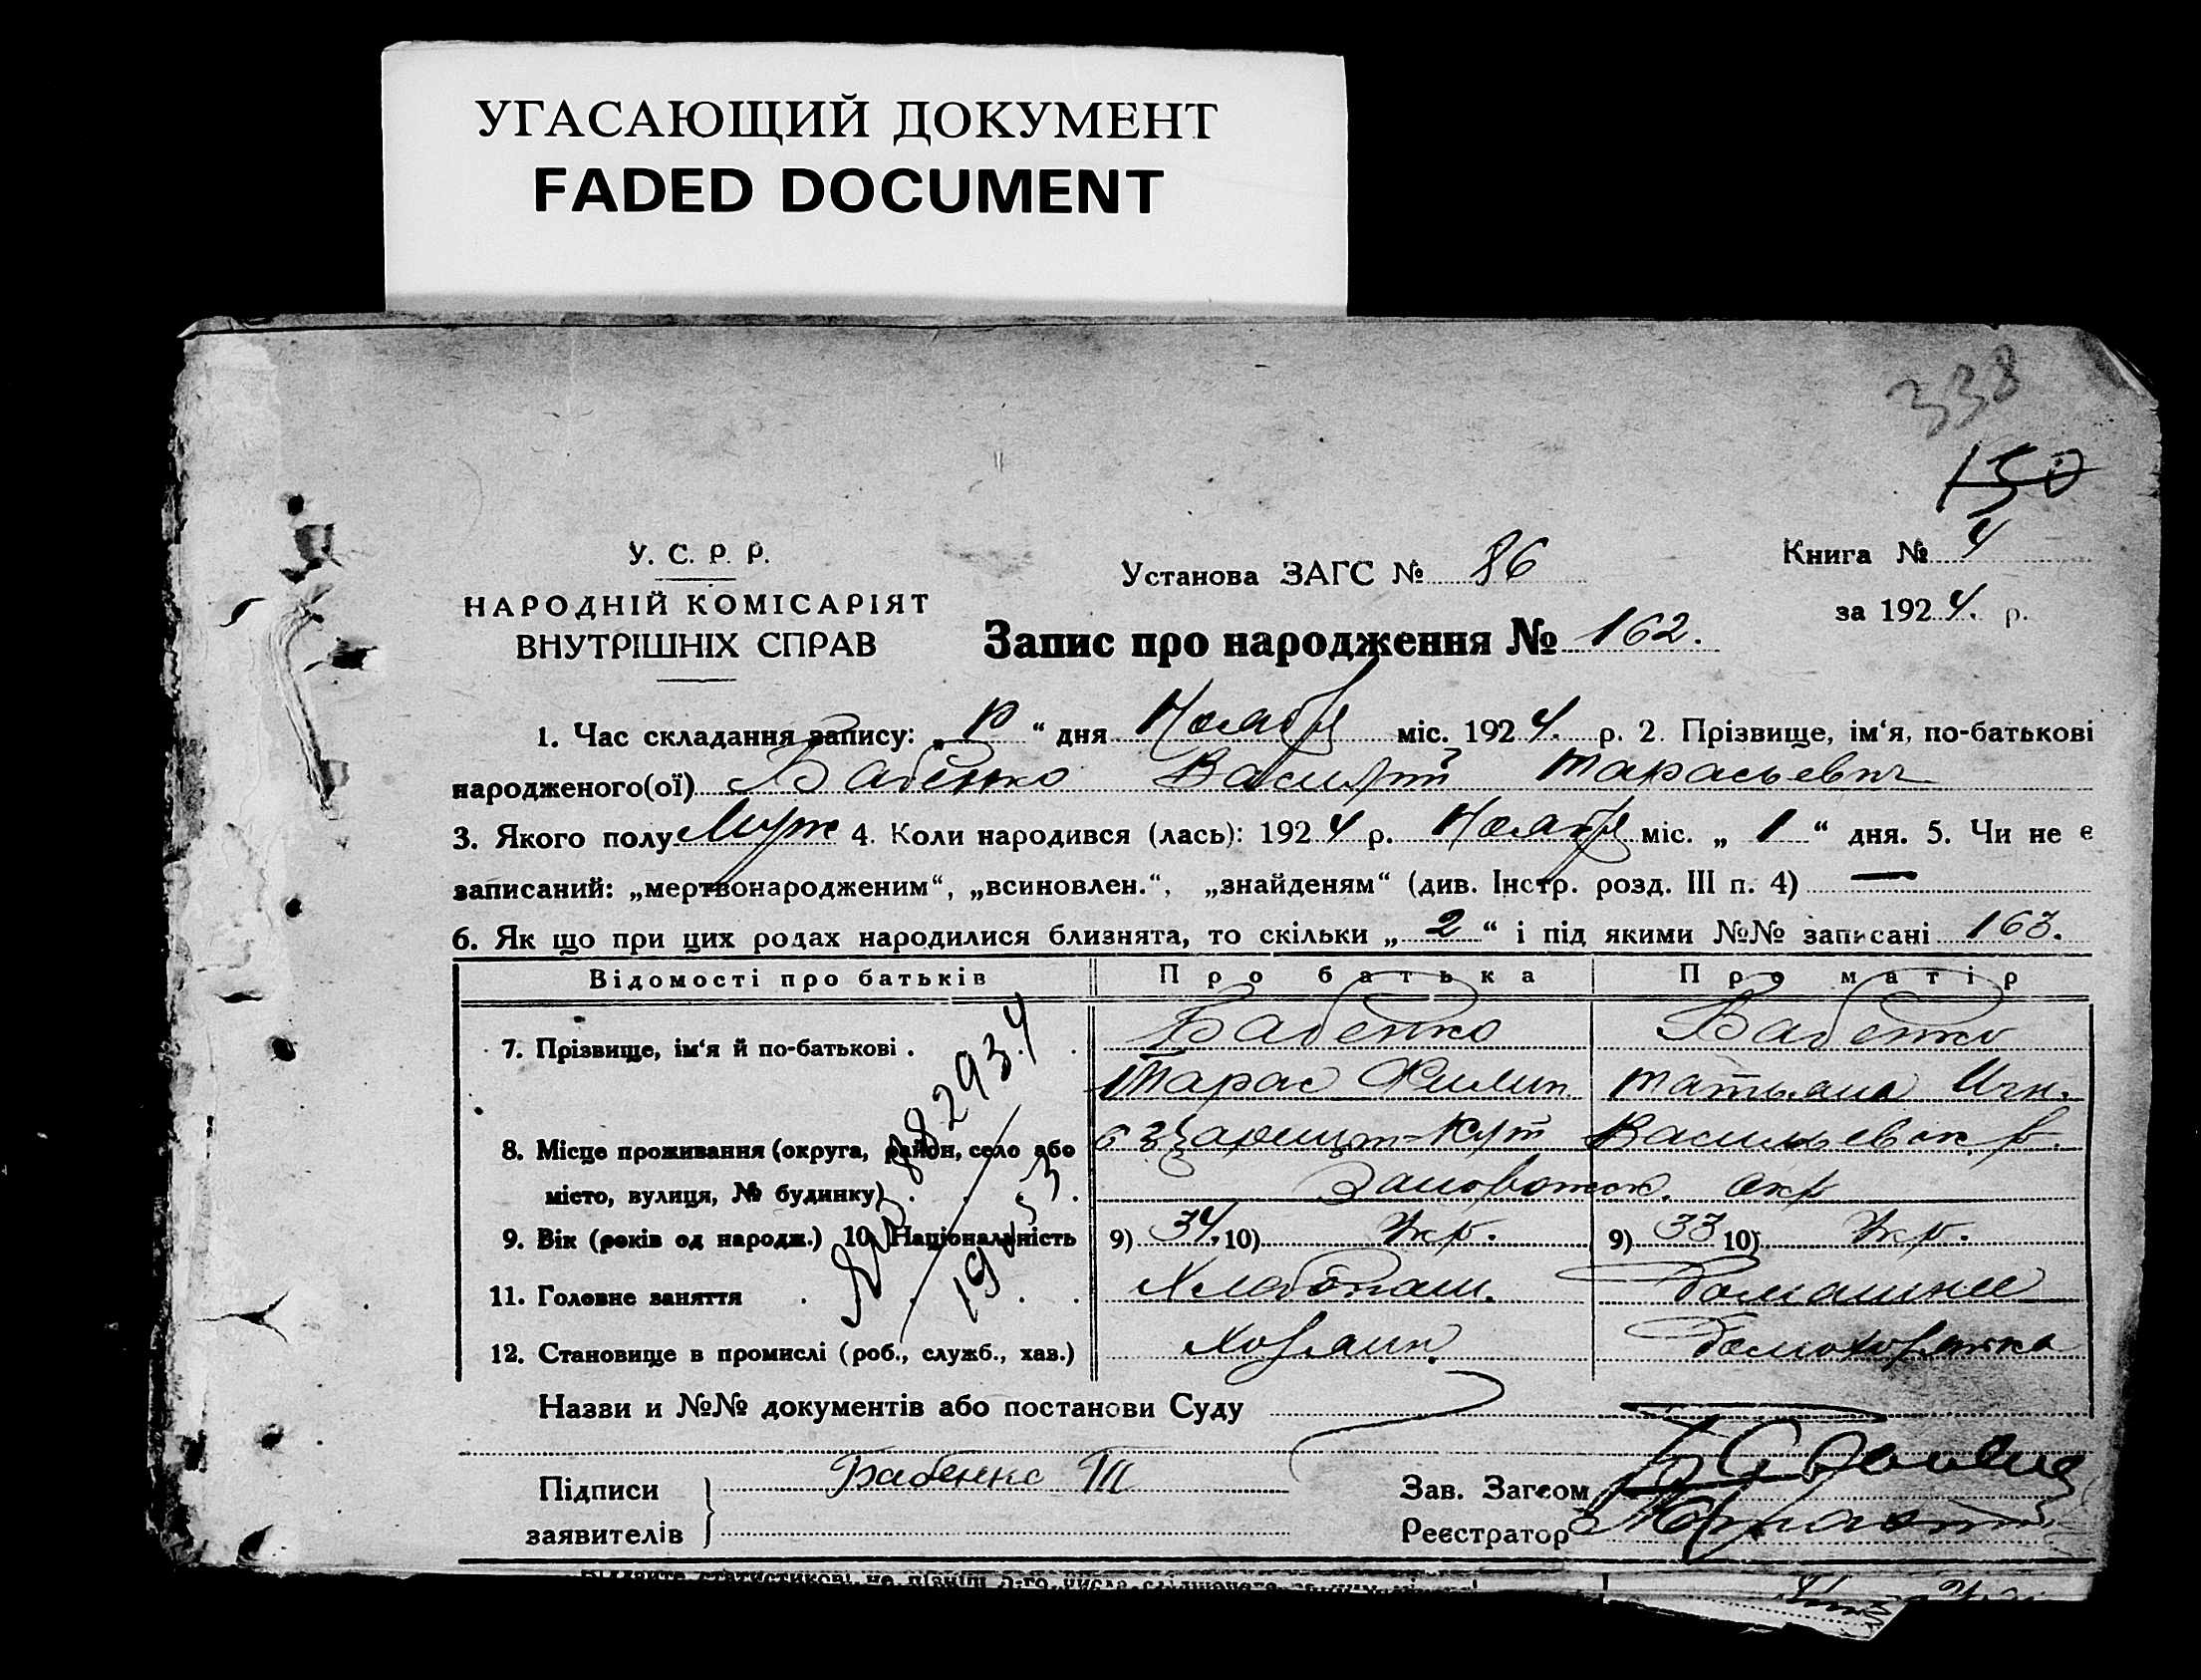 УГАСАЮЩИЙ ДОКУМЕНТ
FADED DOCUMENT
338
150
У. С. Р. Р.
НАРОДНІЙ КОМІСАРІЯТ
ВНУТРІШНІХ СПРАВ
Установа ЗАГС № 86
Книга № 4
за 1924. р.
Запис про народження № 162.
1. Час складання запису: „ 10 “ дня Ноября міс. 1924. р. 2. Прізвище, ім‘я, по-батькові
народженого(ої) Бабенко Василий Тарасьевич
3. Якого полу Муж 4. Коли народився (лась): 1924 р. Ноября міс. „ 1 “ дня. 5. Чи не є
записаний: „мертвонародженим“, „всиновлен.“, „знайденям“ (див. Інстр. розд. III п. 4) —
6. Як що при цих родах народилися близнята, то скільки „ 2 “ і під якими №№ записані 163.
Відомості про батьків Про батька Про матір
7. Прізвище, ім‘я й по-батькові . . Бабенко Бабенко
Тарас Филип. Татьяна Игн.
8. Місце проживання (округа, район, село або
місто, вулиця, № будинку) Кут Васильевск р.
окр
9. Вік (років од народж.) 10. Національність 9) 34. 10) Укр. 9) 33 10) Укр.
11. Головне заняття Хлебопаш. Домашнее
12. Становище в промислі (роб., служб., хаз.) Хозяин. Домохозяйка
882934
Назви и №№ документів або постанови Суду
Підписи Бабенко Т
заявителів
Зав. Загсом
Реєстратор